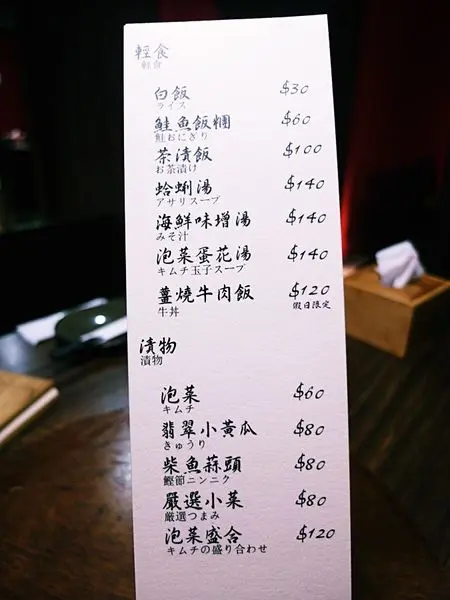 輕食
軽食
白飯 $30
ライス
鮭魚飯糰 $60
鮭おにぎり
茶漬飯 $100
お茶漬け
蛤蜊湯 $140
アサリスープ
海鮮味增湯 $140
みそ汁
泡菜蛋花湯 $140
キムチ玉子スープ
薑燒牛肉飯 $120
牛丼 假日限定
漬物
漬物
泡菜 $60
キムチ
翡翠小黃瓜 $80
きゅうり
柴魚蒜頭 $80
鰹節ニンニク
嚴選小菜 $80
厳選つまみ
泡菜盛合 $120
キムチの盛り合わせ